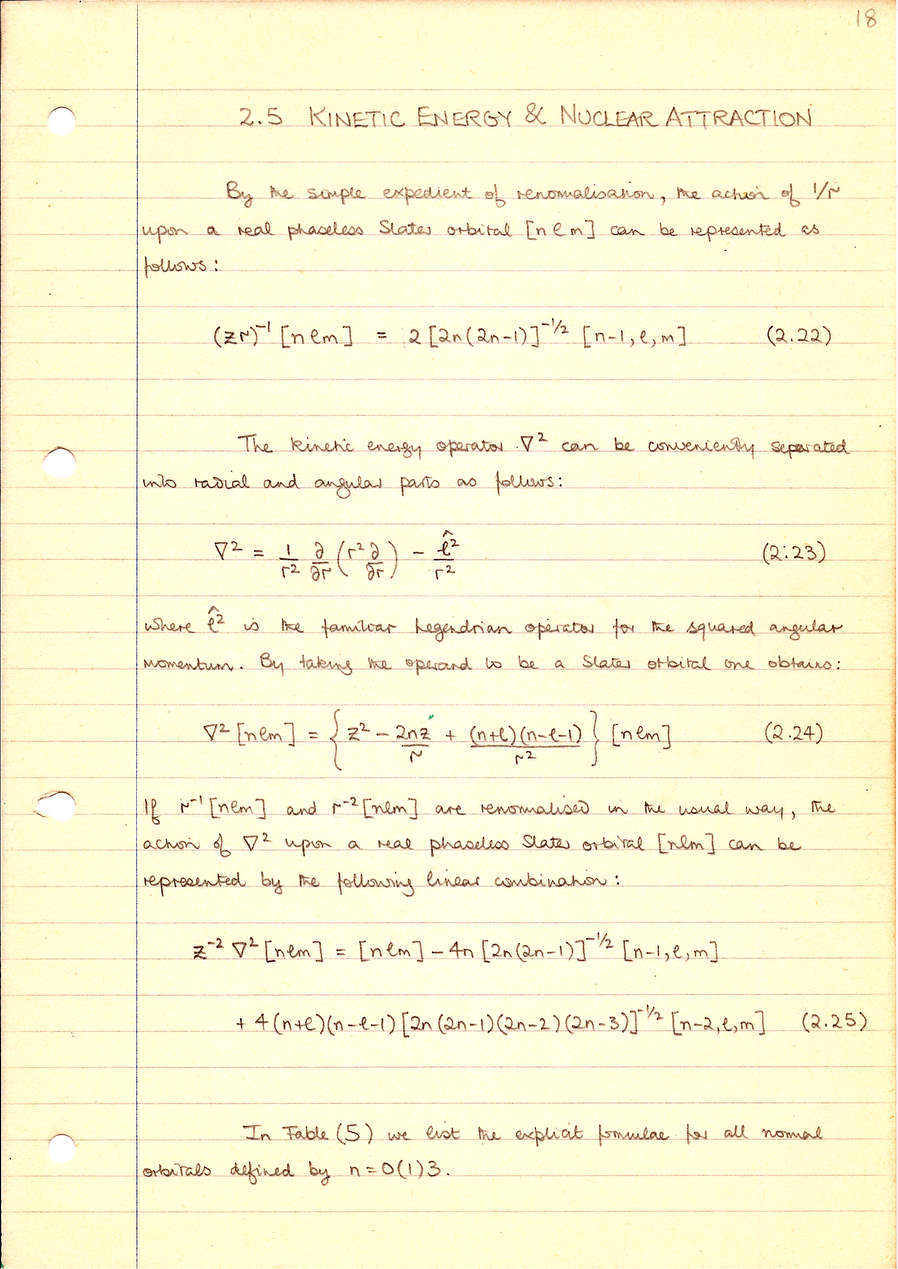 18
2.5 KINETIC ENERGY & NUCLEAR ATTRACTION
By the simple expedient of renormalisation, the action of 1/r
upon a real phaseless Slater orbital [nlm] can be represented as
follows:
(zr)⁻¹ [nlm] = 2 [2n(2n-1)]^(-1/2) [n-1, l, m] (2.22)
The kinetic energy operator ∇² can be conveniently separated
into radial and angular parts as follows:
∇² = 1/r² ∂/∂r (r² ∂/∂r) - l̂²/r² (2.23)
where l̂² is the familiar Legendrian operator for the squared angular
momentum. By taking the operand to be a Slater orbital one obtains:
∇² [nlm] = { z² - 2nz/r + (n+l)(n-l-1)/r² } [nlm] (2.24)
If r⁻¹ [nlm] and r⁻² [nlm] are renormalised in the usual way, the
action of ∇² upon a real phaseless Slater orbital [nlm] can be
represented by the following linear combination:
z⁻² ∇² [nlm] = [nlm] - 4n [2n(2n-1)]^(-1/2) [n-1, l, m]
+ 4(n+l)(n-l-1) [2n(2n-1)(2n-2)(2n-3)]^(-1/2) [n-2, l, m] (2.25)
In Table (5) we list the explicit formulae for all normal
orbitals defined by n = 0(1)3.